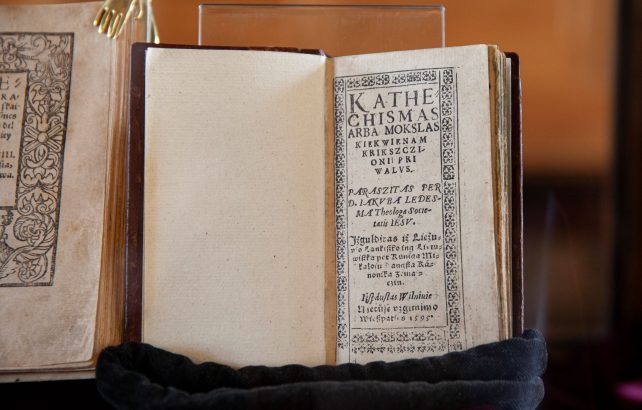 KATHE
CHISMAS
ARBA MOKSLAS
KIEKWIENAM
KRIKSZCZI-
ONII PRI
WALVS.
PARASZITAS PER
D. IAKVBA LEDES-
MA Theologa Socie-
tatis IESV.
Iżgulditas iż Liežu-
wio Lankißko ing Lietu-
wißka per Kuniga Mi-
kaloiu Daugßa Ka-
nonika
Wilniuie
vżgimimo
Wießpaties 1595.